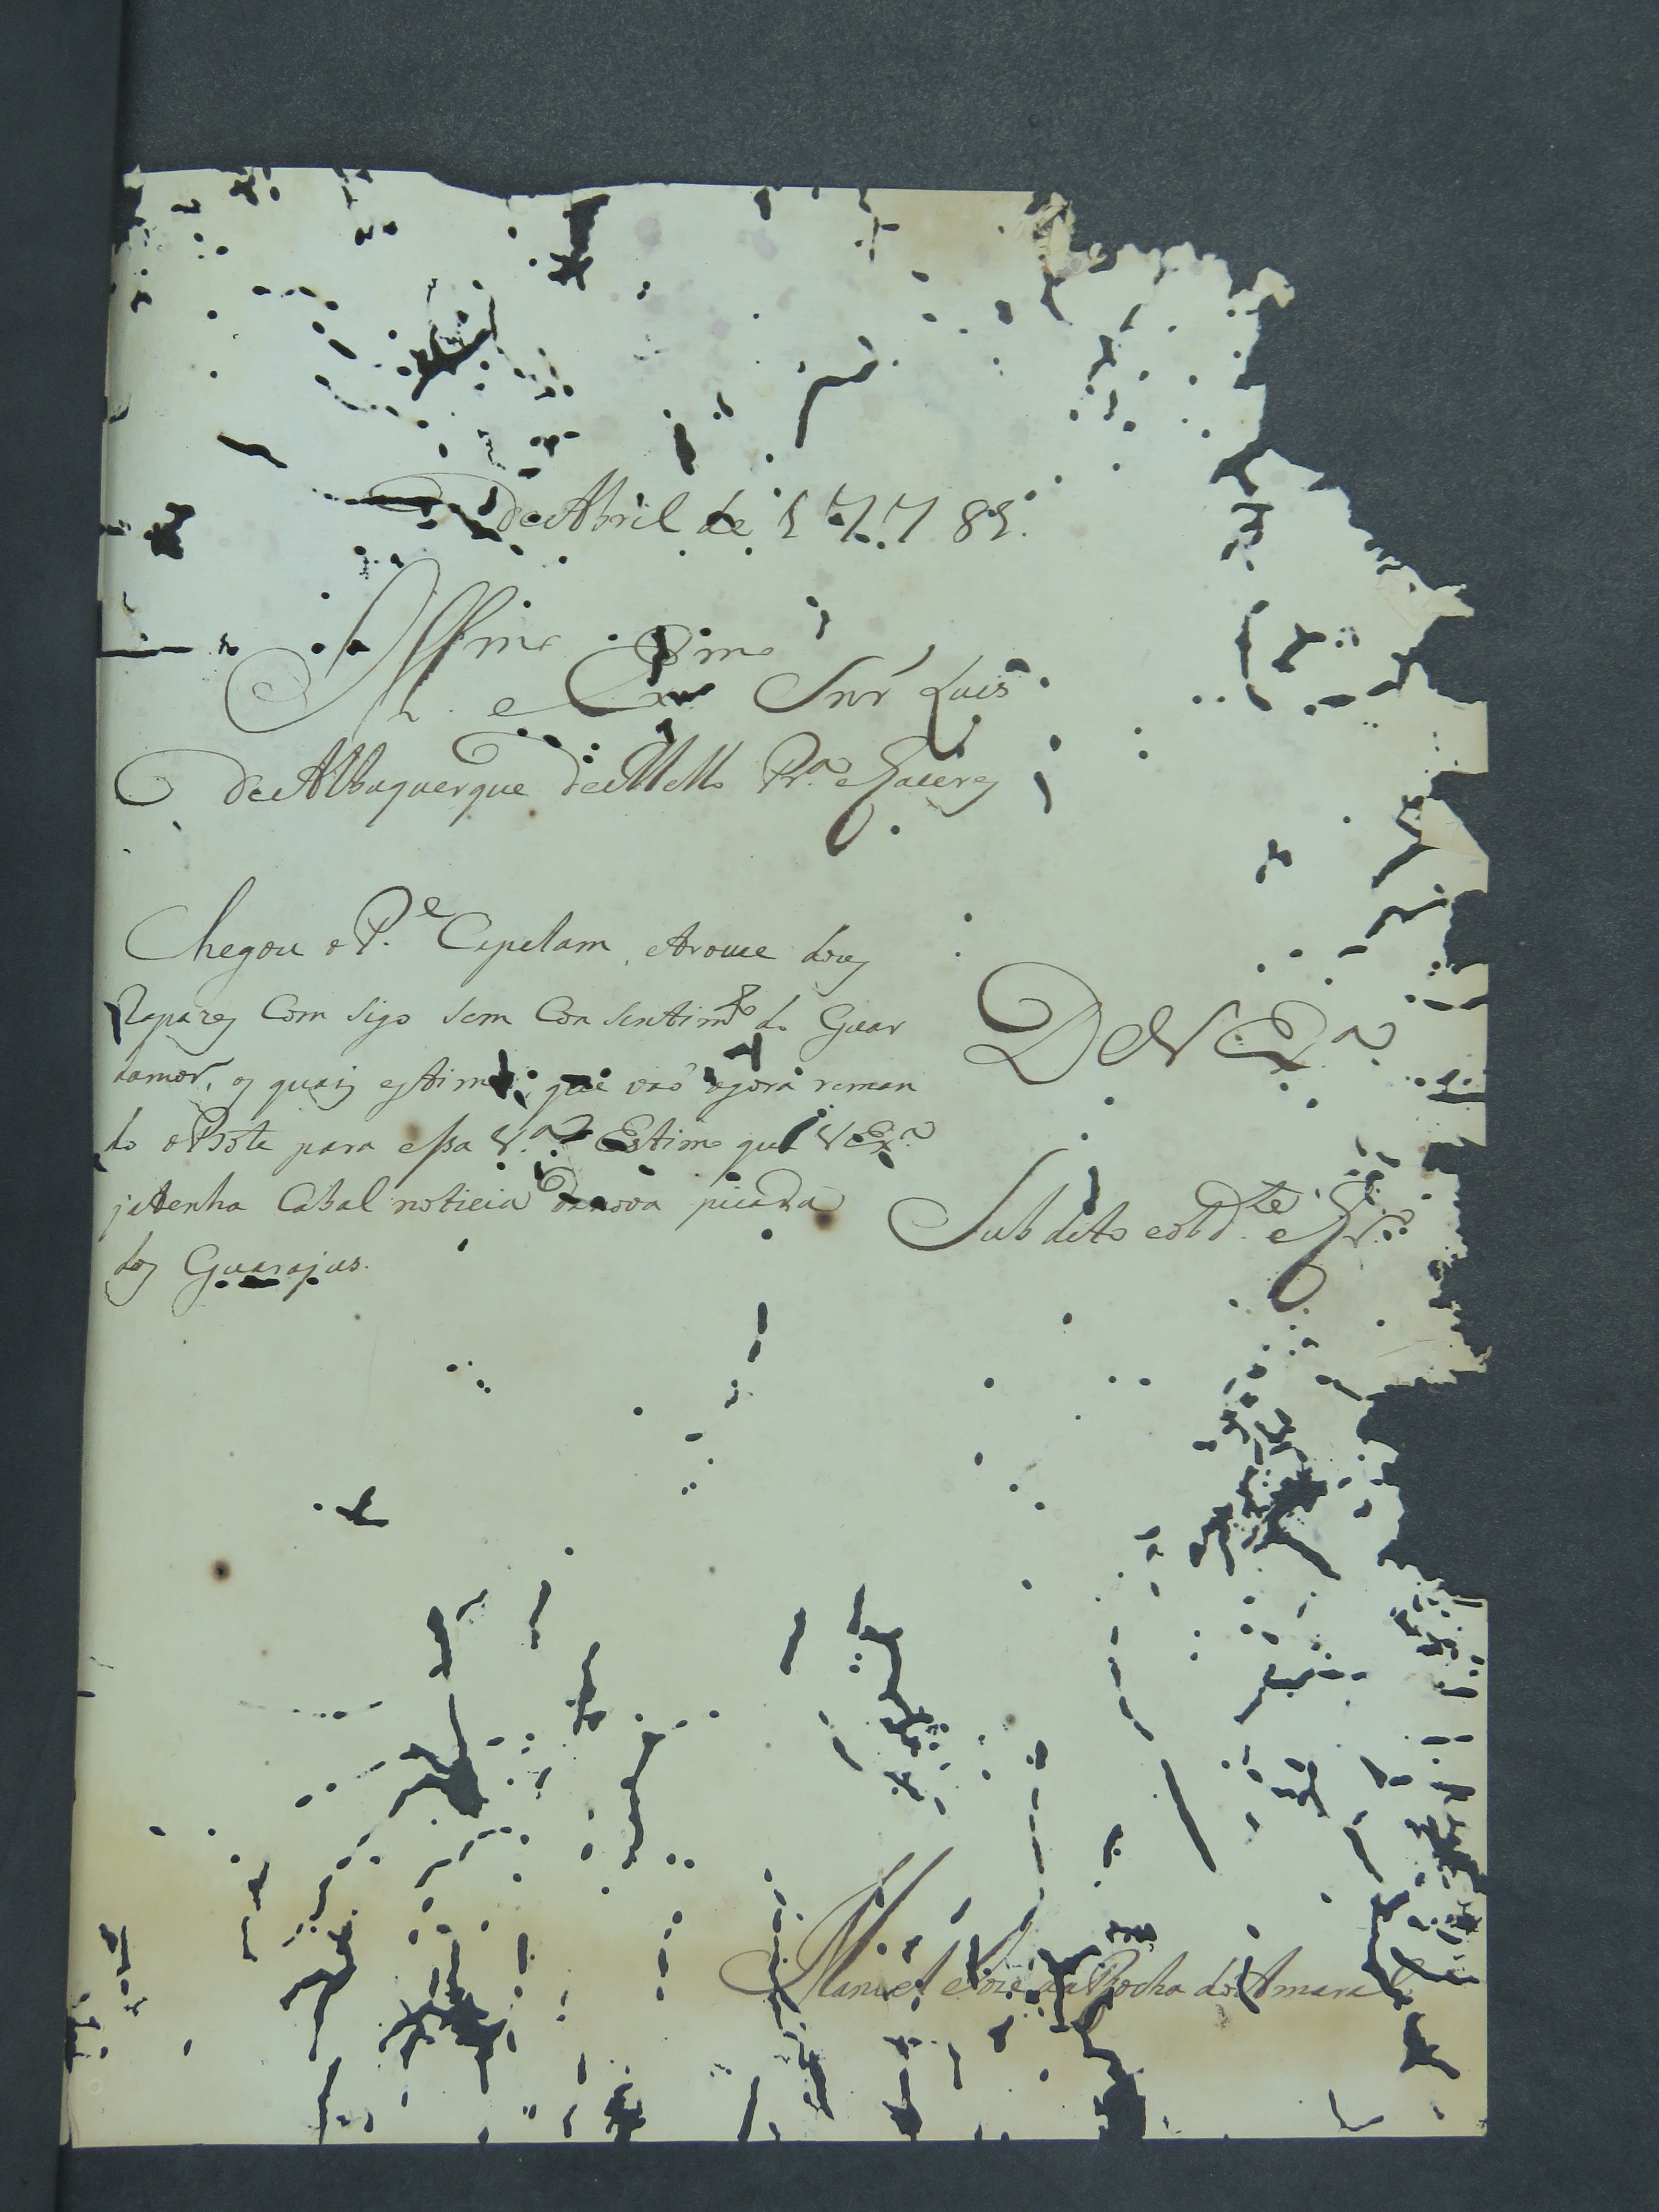 de Abril de 17781.
Illmo Exmo
Sr. e Exmo Snr' Luis
De Albuquerque de Mello Pra. e Caceres
Chegou o P.e Capelam, etrouce dous
Rapazes Com sigo sem Con sentimto do Guar
damor, os quais estimo que vaõ agora reman
do o Bote para essa Va. Estimo que V Exa
ja tenha Cabal noticia danova picada
dos Guarajus.
De V Exa
Sub dito e obd.te e
Manoel Joze da Rocha do Amaral